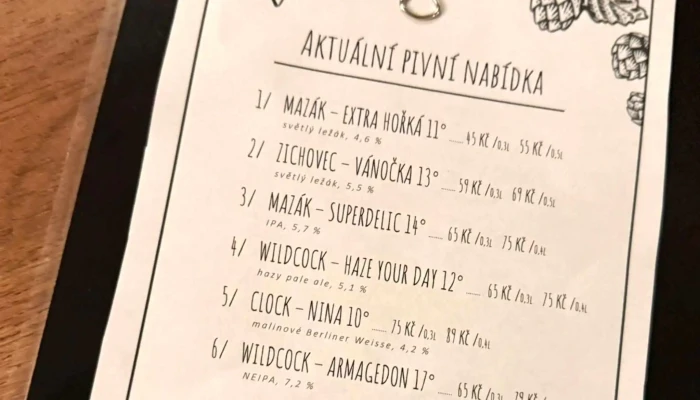 AKTUÁLNÍ PIVNÍ NABÍDKA
1/ MAZÁK – EXTRA HOŘKÁ 11° ..... 45 KČ /0,3L 55 KČ /0,5L
světlý ležák, 4,6 %
2/ ZICHOVEC – VÁNOČKA 13° ..... 59 KČ /0,3L 69 KČ /0,5L
světlý ležák, 5,5 %
3/ MAZÁK – SUPERDELIC 14° ..... 65 KČ /0,3L 75 KČ /0,4L
IPA, 5,7 %
4/ WILDCOCK – HAZE YOUR DAY 12° ..... 65 KČ /0,3L 75 KČ /0,4L
hazy pale ale, 5,1 %
5/ CLOCK – NINA 10° ..... 75 KČ /0,3L 89 KČ /0,4L
malinové Berliner Weisse, 4,2 %
6/ WILDCOCK – ARMAGEDON 17° ..... 65 KČ /0,3L
NEIPA, 7,2 %